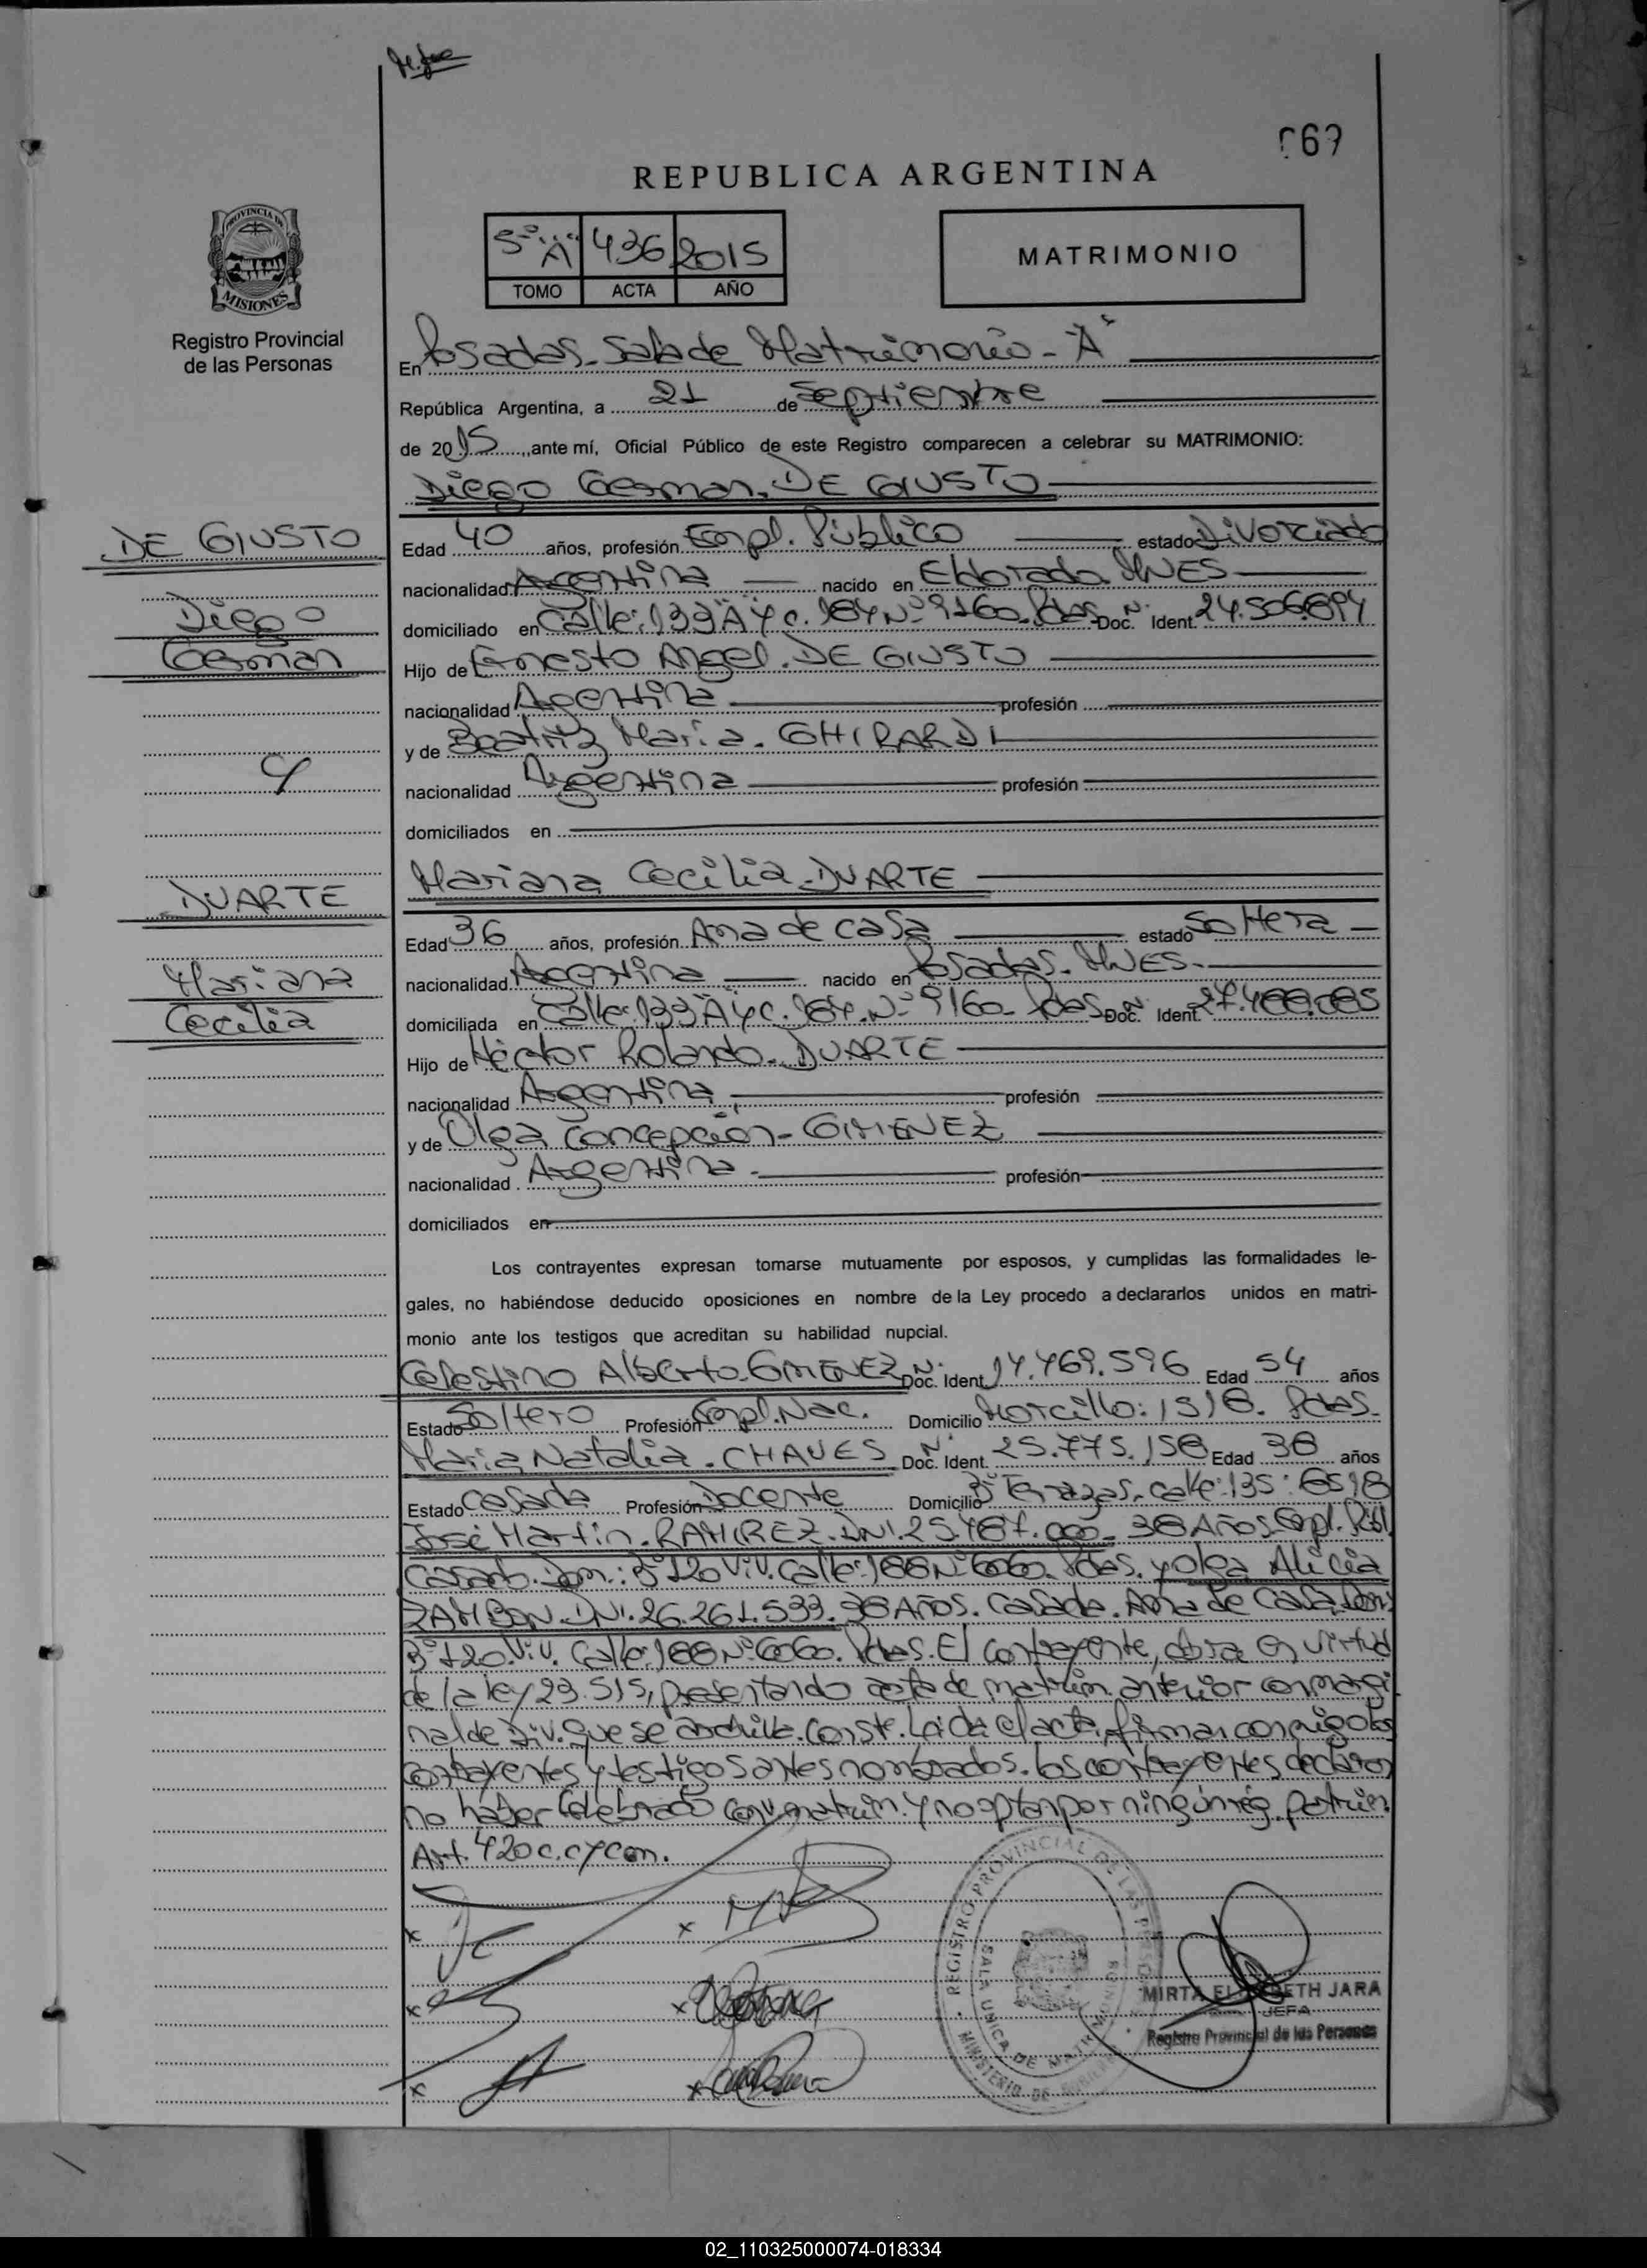 067
REPUBLICA ARGENTINA
PROVINCIA DE
MISIONES
Registro Provincial
de las Personas
5º "A" 436 2015
TOMO ACTA AÑO
MATRIMONIO
En Posadas. Sala de Matrimonio - "A"
República Argentina, a 21 de Septiembre
de 2015, ante mí, Oficial Público de este Registro comparecen a celebrar su MATRIMONIO:
Diego German. DE GIUSTO
DE GIUSTO
Diego
German
Edad 40 años, profesión Empl. Público estado Divorciado
nacionalidad Argentina nacido en Eldorado. MNES
domiciliado en Calle: 133 "A" y c. 184 Nº 9160. Pdas. Doc. Nº Ident. 24.506.894
Hijo de Ernesto Angel. DE GIUSTO
nacionalidad Argentina profesión
y de Beatriz Maria. GHIRARDI
y
nacionalidad Argentina profesión
domiciliados en
Mariana Cecilia. DUARTE
DUARTE
Mariana
Cecilia
Edad 36 años, profesión Ama de casa estado Soltera
nacionalidad Argentina nacido en Posadas. MNES.
domiciliada en Calle: 133 "A" y c. 184. Nº 9160. Pdas. Doc. Nº Ident. 27.488.085
Hijo de Héctor Rolando. DUARTE
nacionalidad Argentina profesión
y de Olga Concepción - GIMENEZ
nacionalidad Argentina. profesión
domiciliados en
Los contrayentes expresan tomarse mutuamente por esposos, y cumplidas las formalidades le-
gales, no habiéndose deducido oposiciones en nombre de la Ley procedo a declararlos unidos en matri-
monio ante los testigos que acreditan su habilidad nupcial.
Celestino Alberto. GIMENEZ Nº Doc. Ident. 14.469.596 Edad 54 años
Estado Soltero Profesión Empl. Nac. Domicilio Morcillo: 1318. Pdas.
Maria Natalia. CHAVES Nº Doc. Ident. 25.775.158 Edad 38 años
Estado Casada Profesión Docente Domicilio Bº Terrazas. calle: 135: 6518
José Martin. RAMIREZ. DNI. 25.487.000. 38 Años. Empl. Públ.
Casado. Dom.: Bº 120 Viv. Calle: 188 Nº 6060. Pdas. y Olga Alicia
ZAMBON. DNI. 26.261.533. 38 Años. Casada. Ama de Casa. Dom:
Bº 120. Viv. Calle: 188 Nº 6060. Pdas. El contrayente, obra en virtud
de la ley 23.515, presentando acta de matrim. anterior con margi
nal de Div. que se archiva. Conste. Leída el acta, firman conmigo los
contrayentes y testigos antes nombrados. los contrayentes declaran
no haber celebrado conv. matrim. y no optan por ningún rég. patrim.
Art. 420 c. c y Com.
REGISTRO PROVINCIAL DE LAS PERSONAS
SALA UNICA DE MATRIMONIOS
MINISTERIO DE GOBIERNO
MIRTA ELIZABETH JARA
JEFA
Registro Provincial de las Personas
02_110325000074-018334